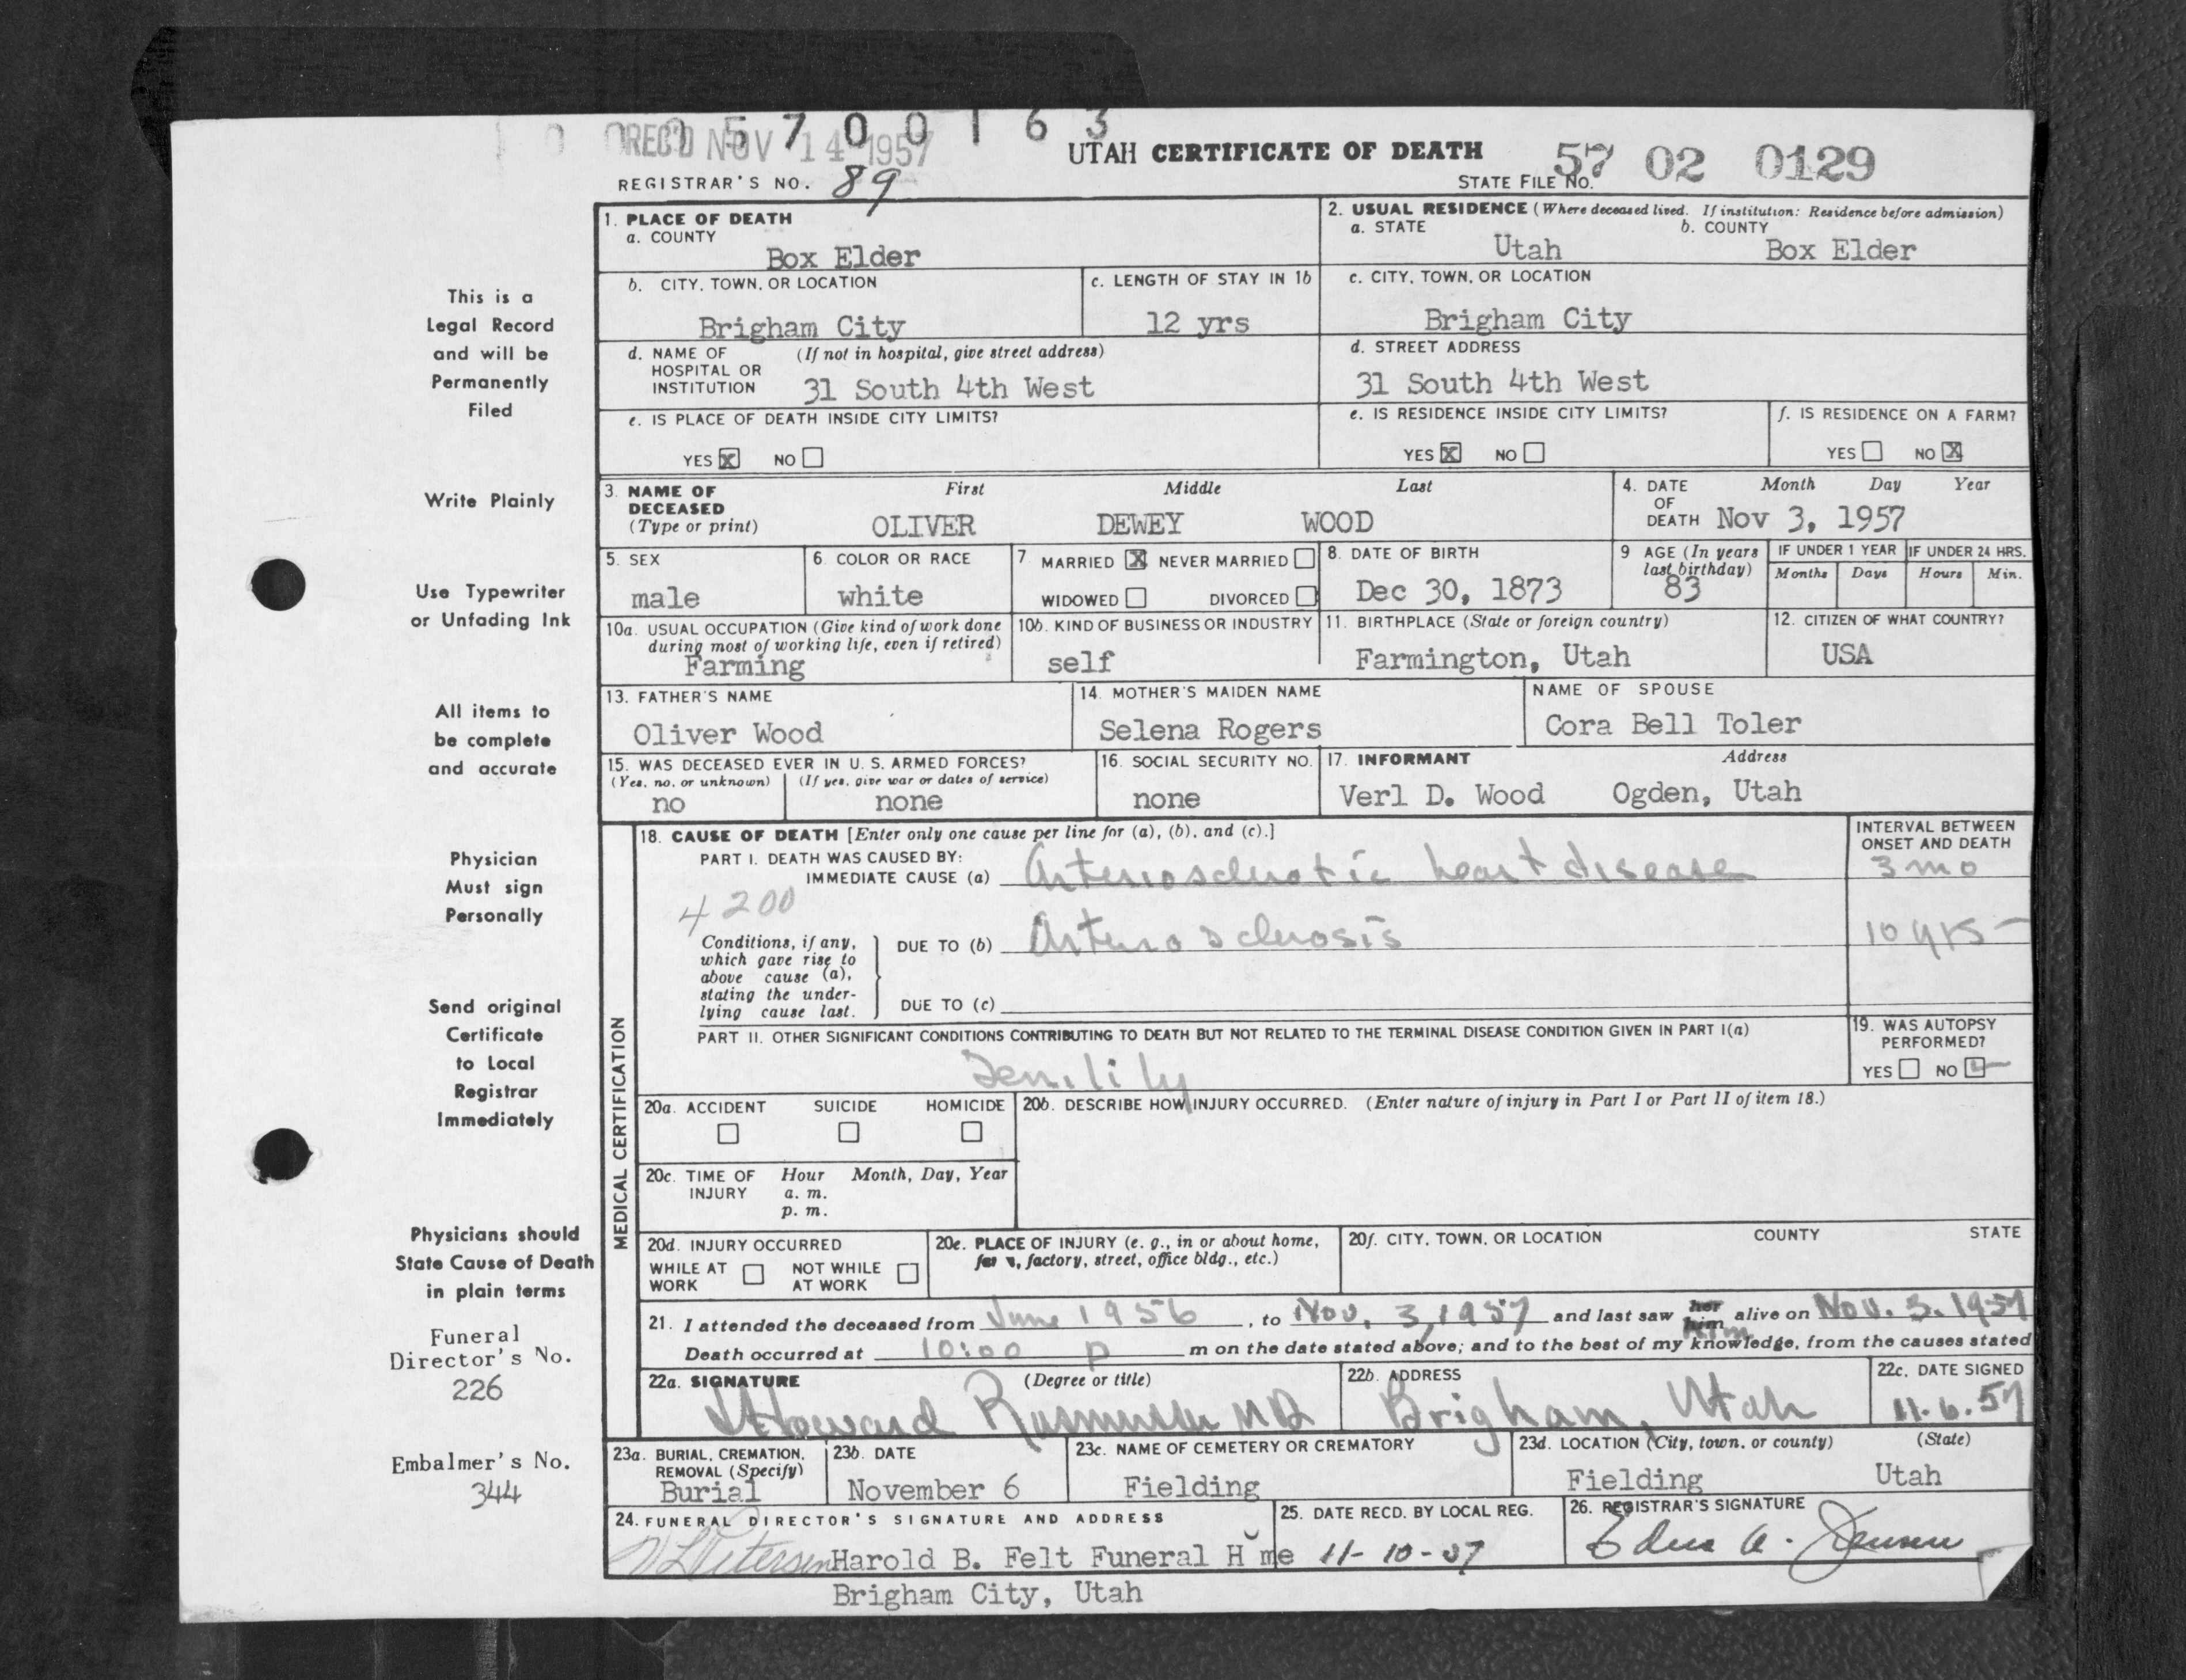 5 7 0 0 1 6 3
REC'D NOV 14 1957
UTAH CERTIFICATE OF DEATH
57 02 0129
REGISTRAR'S NO. 89
STATE FILE NO.
1. PLACE OF DEATH
a. COUNTY
Box Elder
2. USUAL RESIDENCE (Where deceased lived. If institution: Residence before admission)
a. STATE b. COUNTY
Utah Box Elder
b. CITY, TOWN, OR LOCATION
Brigham City
c. LENGTH OF STAY IN 1b
12 yrs
c. CITY, TOWN, OR LOCATION
Brigham City
d. NAME OF (If not in hospital, give street address)
HOSPITAL OR
INSTITUTION 31 South 4th West
d. STREET ADDRESS
31 South 4th West
e. IS PLACE OF DEATH INSIDE CITY LIMITS?
YES X NO
e. IS RESIDENCE INSIDE CITY LIMITS?
YES X NO
f. IS RESIDENCE ON A FARM?
YES NO X
3. NAME OF First Middle Last
DECEASED
(Type or print) OLIVER DEWEY WOOD
4. DATE Month Day Year
OF
DEATH Nov 3, 1957
5. SEX
male
6. COLOR OR RACE
white
7 MARRIED X NEVER MARRIED
WIDOWED DIVORCED
8. DATE OF BIRTH
Dec 30, 1873
9 AGE (In years
last birthday)
83
IF UNDER 1 YEAR
Months Days
IF UNDER 24 HRS.
Hours Min.
10a. USUAL OCCUPATION (Give kind of work done
during most of working life, even if retired)
Farming
10b. KIND OF BUSINESS OR INDUSTRY
self
11. BIRTHPLACE (State or foreign country)
Farmington, Utah
12. CITIZEN OF WHAT COUNTRY?
USA
13. FATHER'S NAME
Oliver Wood
14. MOTHER'S MAIDEN NAME
Selena Rogers
NAME OF SPOUSE
Cora Bell Toler
15. WAS DECEASED EVER IN U. S. ARMED FORCES?
(Yes, no, or unknown) (If yes, give war or dates of service)
no none
16. SOCIAL SECURITY NO.
none
17. INFORMANT Address
Verl D. Wood Ogden, Utah
MEDICAL CERTIFICATION
18. CAUSE OF DEATH [Enter only one cause per line for (a), (b), and (c).]
INTERVAL BETWEEN
ONSET AND DEATH
PART I. DEATH WAS CAUSED BY:
IMMEDIATE CAUSE (a) Arteriosclerotic heart disease 3 mo
4200
Conditions, if any,
which gave rise to
above cause (a),
stating the under-
lying cause last.
DUE TO (b) Arteriosclerosis 10 yrs
DUE TO (c)
PART II. OTHER SIGNIFICANT CONDITIONS CONTRIBUTING TO DEATH BUT NOT RELATED TO THE TERMINAL DISEASE CONDITION GIVEN IN PART I(a)
Senility
19. WAS AUTOPSY
PERFORMED?
YES NO
20a. ACCIDENT SUICIDE HOMICIDE
20b. DESCRIBE HOW INJURY OCCURRED. (Enter nature of injury in Part I or Part II of item 18.)
20c. TIME OF Hour Month, Day, Year
INJURY a. m.
p. m.
20d. INJURY OCCURRED
WHILE AT NOT WHILE
WORK AT WORK
20e. PLACE OF INJURY (e. g., in or about home,
factory, street, office bldg., etc.)
20f. CITY, TOWN, OR LOCATION COUNTY STATE
21. I attended the deceased from June 1956, to Nov. 3, 1957 and last saw her him alive on Nov. 3. 1957
him
Death occurred at 10:00 p m on the date stated above; and to the best of my knowledge, from the causes stated
22a. SIGNATURE (Degree or title)
Howard Rasmussen MD
22b. ADDRESS
Brigham, Utah
22c. DATE SIGNED
11.6.57
23a. BURIAL, CREMATION,
REMOVAL (Specify)
Burial
23b. DATE
November 6
23c. NAME OF CEMETERY OR CREMATORY
Fielding
23d. LOCATION (City, town, or county) (State)
Fielding Utah
24. FUNERAL DIRECTOR'S SIGNATURE AND ADDRESS
Petersen Harold B. Felt Funeral H me
Brigham City, Utah
25. DATE RECD. BY LOCAL REG.
11-10-57
26. REGISTRAR'S SIGNATURE
Jensen
This is a
Legal Record
and will be
Permanently
Filed
Write Plainly
Use Typewriter
or Unfading Ink
All items to
be complete
and accurate
Physician
Must sign
Personally
Send original
Certificate
to Local
Registrar
Immediately
Physicians should
State Cause of Death
in plain terms
Funeral
Director's No.
226
Embalmer's No.
344